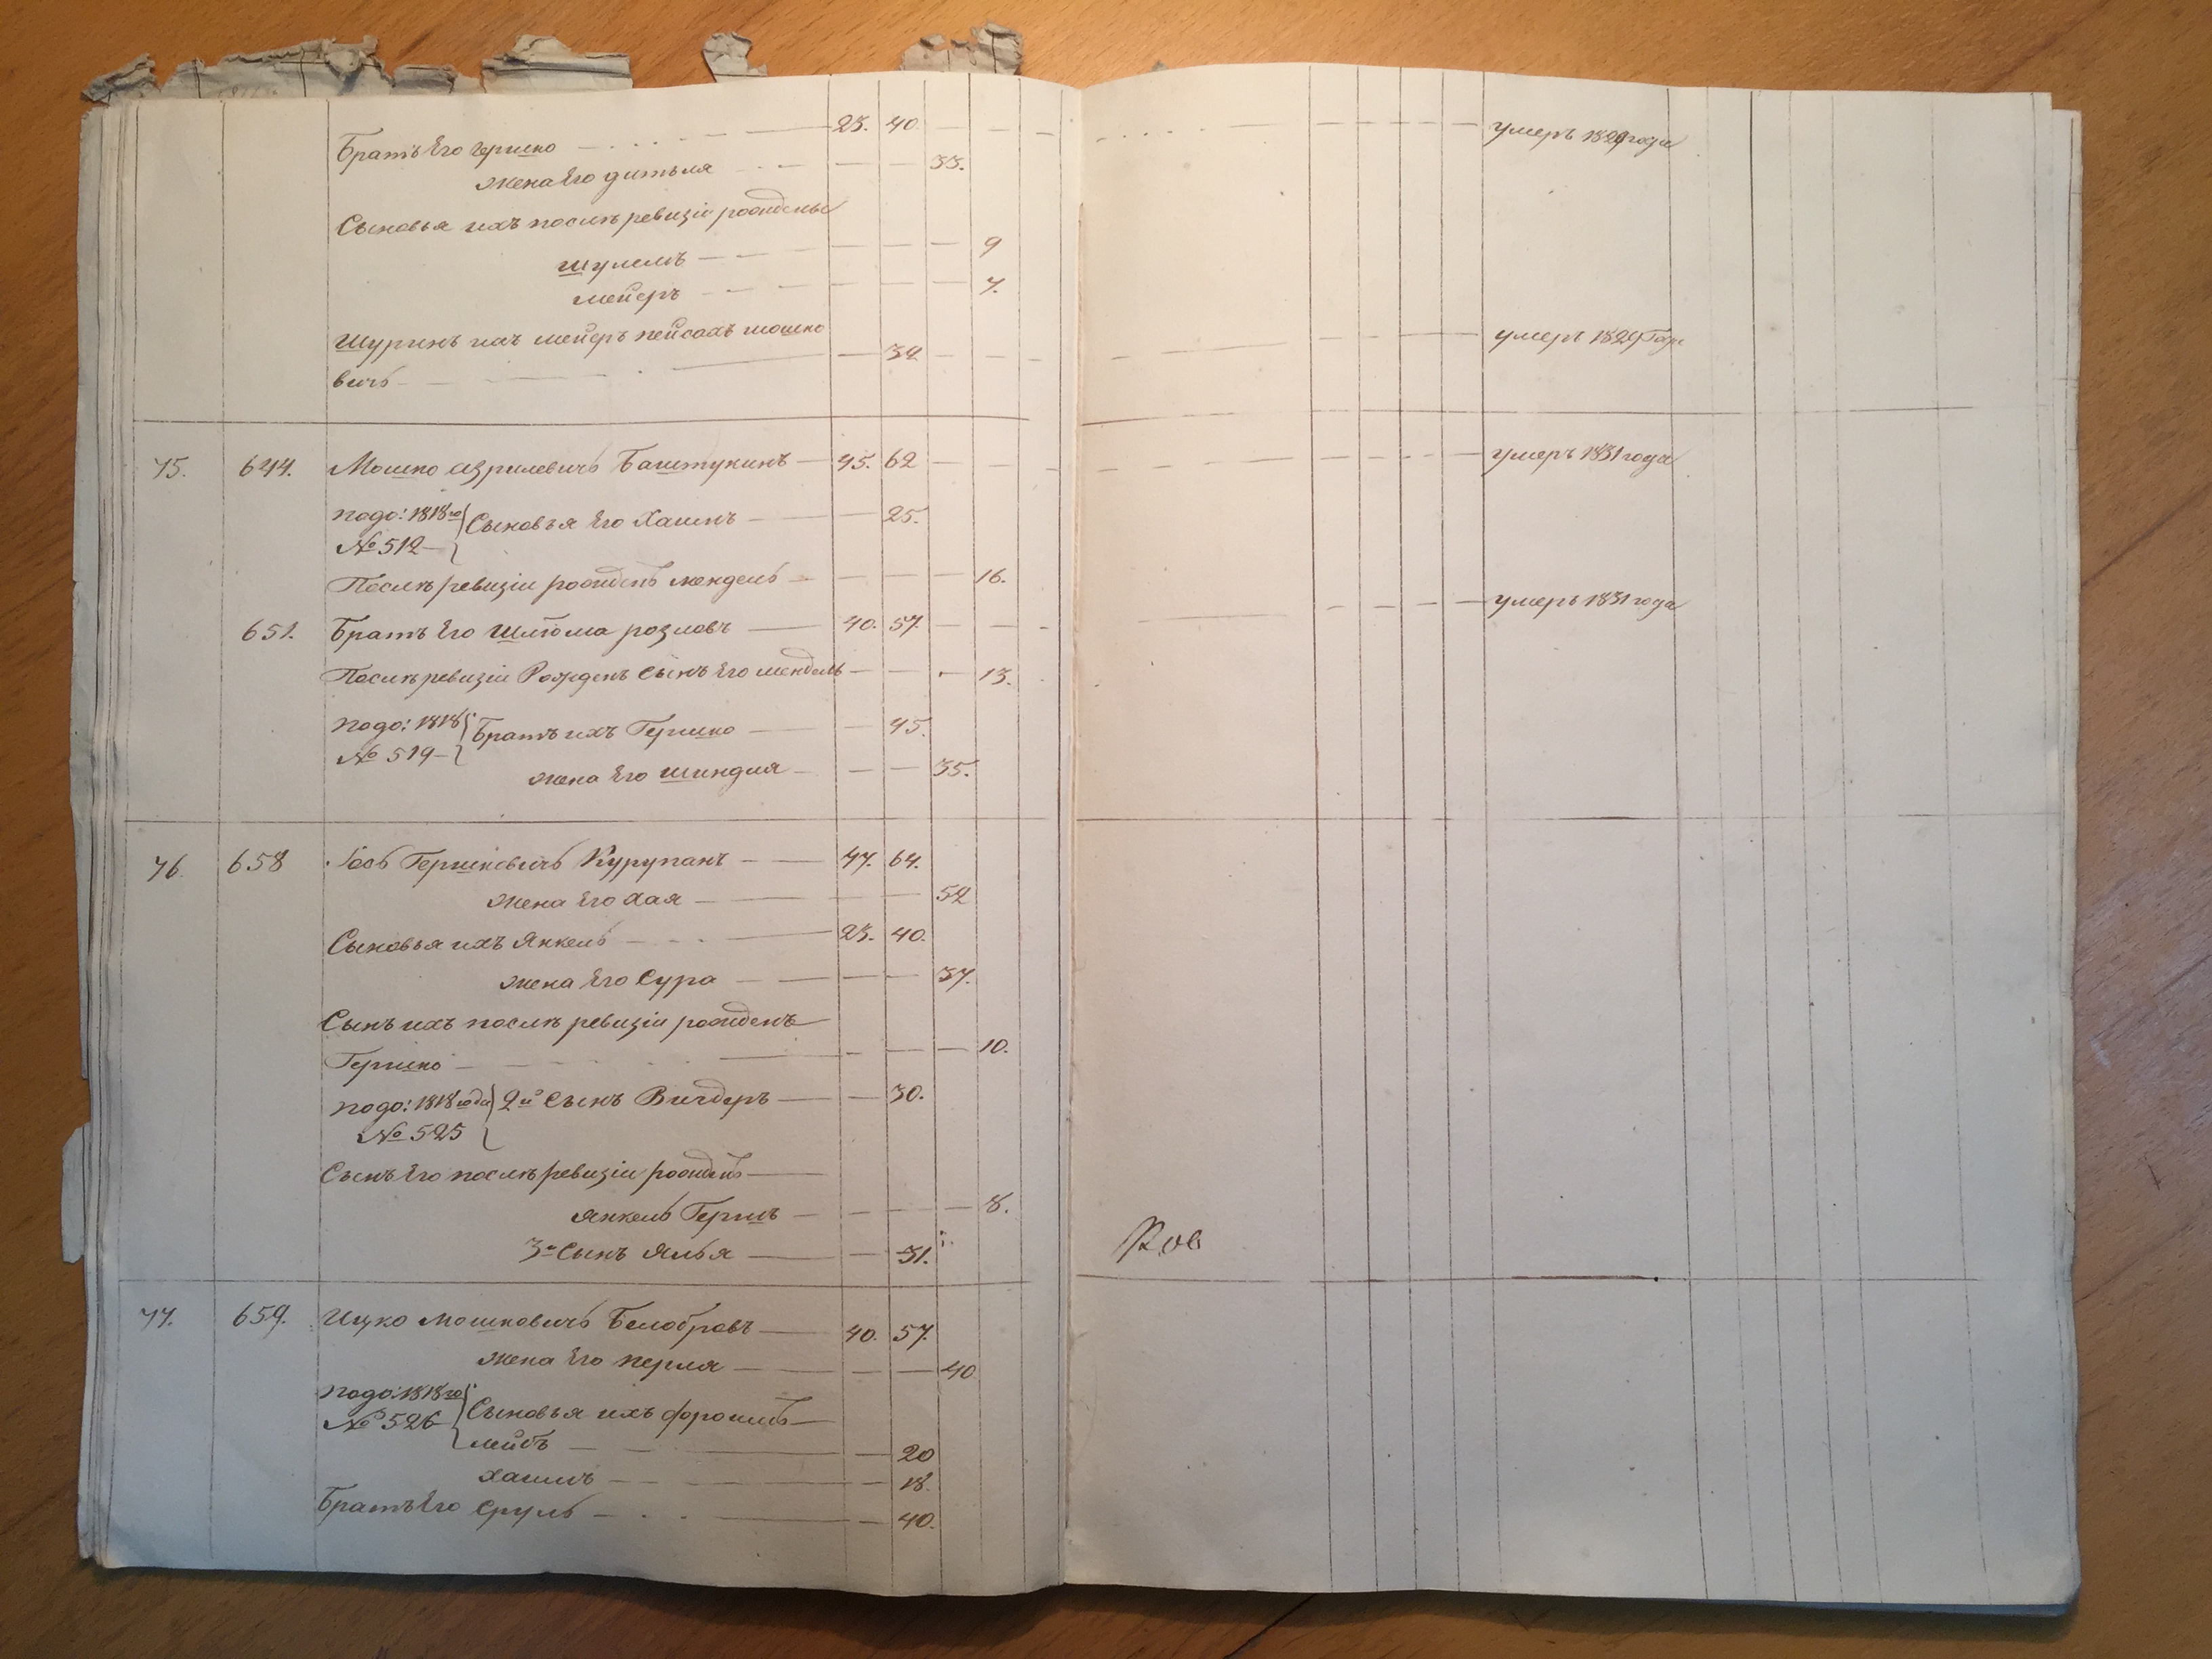 Братъ Его Гершко 23. 40 умеръ 1829 года
жена Его дитъля 33.
Сыновья ихъ послѣ ревизіи рожденые
Шулемъ 9
Мейеръ 7.
Шуринъ ихъ Мейеръ Пейсахъ Мошко
вичь 32 умеръ 1829 Года
75. 644. Мошко Азрилевичь Баштукинъ 45. 62 умеръ 1831 года
подо: 1818го Сыновья Его Хаимъ 25.
№ 512
Послѣ ревизіи рожденъ Мендель 16.
651. Братъ Его Шліома розновъ 40. 57. умеръ 1831 года
Послѣ ревизіи Рожденъ Сынъ Его Мендель 13.
подо: 1818 Братъ ихъ Гершко 45.
№ 519
жена Его Шиндля 35.
76. 658 Іось Гершковичь Курупанъ 47. 64.
жена Его Хая 52
Сыновья ихъ Янкель 23. 40.
жена Его Сура 37.
Сынъ ихъ послѣ ревизіи рожденъ
Гершко 10.
подо: 1818 года 2й Сынъ Вигдеръ 30.
№ 525
Сынъ Его послѣ ревизіи рожденъ
Янкель Гершъ 8.
3й Сынъ Элья 31.
77. 659. Ицко Мошковичь Белобровъ 40. 57.
жена Его Перля 40
подо: 1818го Сыновья ихъ Фроимъ
№ 526 Лейбъ 20
Хаимъ 18.
Братъ Его Сруль 40.